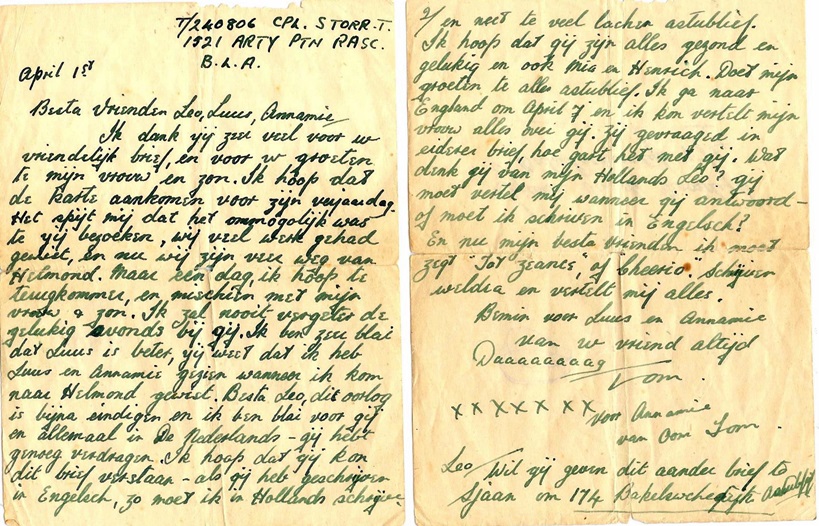 T/240806 CPL. STORR.T.
1521 ARTY PTN RASC.
B.L.A.
April 1st
Besta Vrienden Leo, Luus, Annamie
Ik dank yij zeer veel voor uw
vriendelijk brief, en voor uw groeten
te mijn vrouw en zon. Ik hoop dat
de Karte aankomen voor zijn verjaardag.
Het spijt mij dat het ommogolijk was
te yij bezoeken, wij veel werk gehad
geweest, en nu wij zijn veer weg van
Helmond. Maar een dag, ik hoop te
terugkommer, en mischien met mijn
vrouw & zon. Ik zal nooit vergeter de
gelukig avonds bij gij. Ik ben zeer blai
dat Luus is beter, yij weet dat ik heb
Luus en Annamie gezien wanneer ik kom
naar Helmond geweest. Besta Leo, dit oorlog
is bijna eindigen en ik ben blai voor gij
en allemaal in De Nederlands - gij hebt
genoeg verdragen. Ik hoop dat gij kon
dit brief verstaan - als gij heb geschrijven
in Engelsch, zo moet ik in Hollands schrijven
2/ en neet te veel lachen astublief.
Ik hoop dat gij zijn alles gezond en
gelukig en ook Mia en Henrich. Doet mijn
groeten te alles astublief. Ik ga naar
England om April 7 en ik kon vertelt mijn
vrouw alles over gij. Zij gevraaged in
eiderer brief, hoe gart het met gij. Wat
denk gij van mijn Hollands Leo? gij
moet vertel mij wanneer gij antwoord -
of moet ik schriven in Engelsch?
En nu mijn besta vrienden ik moet
zegt "Tot zeance", of "Cheerio" Schijven
weldra en vertelt mij alles.
Bemin voor Luus en Annamie
van uw vriend altijd
Daaaaaaaag
Tom.
x x x x x x x voor Annamie
van Oom Tom.
Leo/ Wil yij geven dit aander brief te
Sjaan om 174